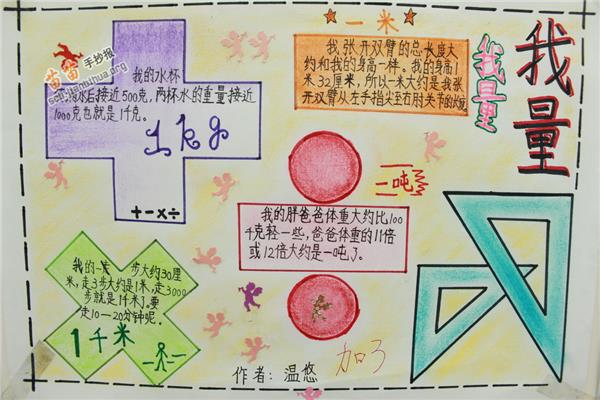 苗苗手抄报
我的水杯
满水后接近500克,两杯水的重量接近
1000克也就是1千克。
1kg
+-×÷
一米
我张开双臂的总长度大
约和我的身高一样。我的身高1
米32厘米,所以一米大约是我张
开双臂从左手指尖至右肘关节的长度。
我量
我量
一吨
我的胖爸爸体重大约比100
千克轻一些,爸爸体重的11倍
或12倍大约是一吨了。
我的一步大约30厘
米,走3步大约是1米,走3000
步就是1千米了。要
走10—20分钟呢。
1千米
作者:温悠